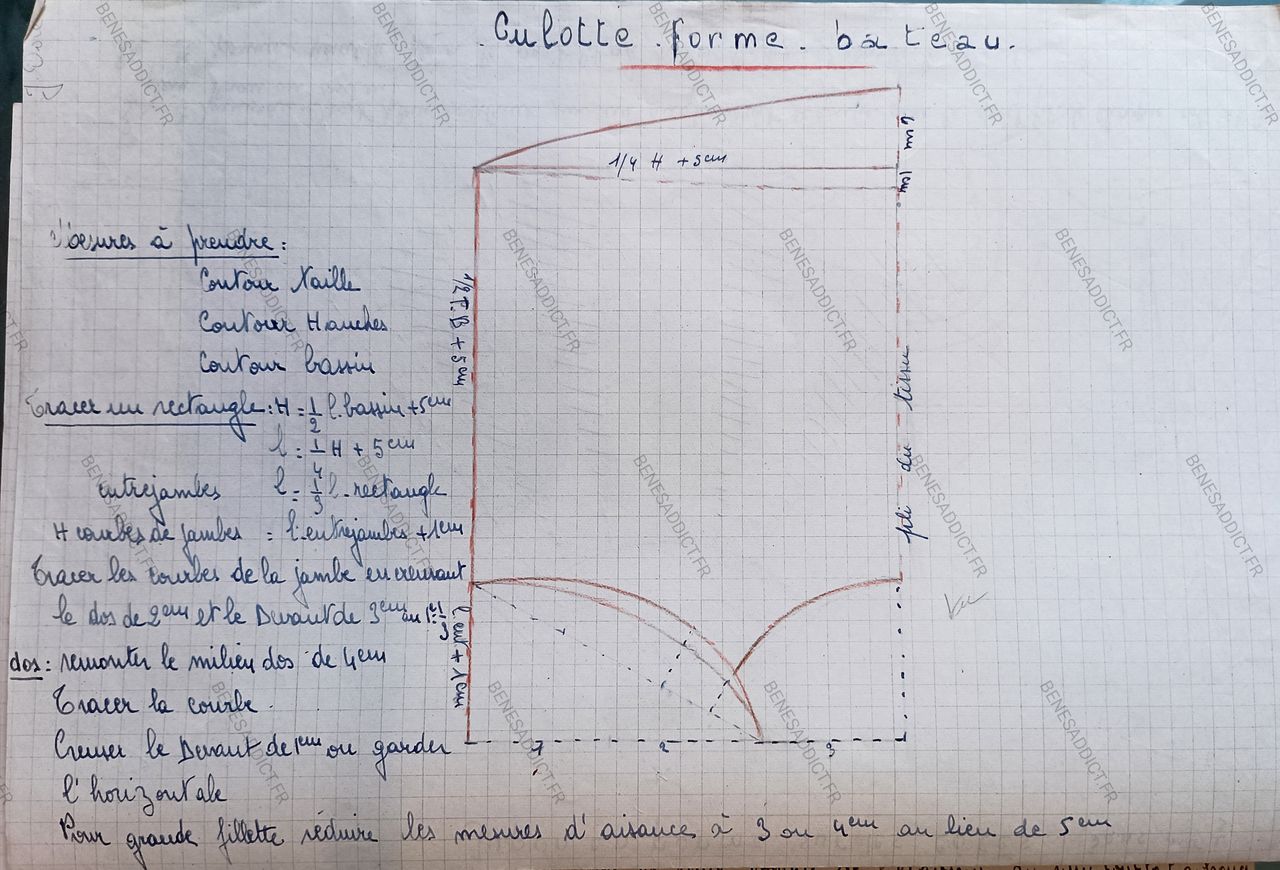 Culotte forme bateau.
1/4 H + 5cm
4 cm
1cm
Mesures à prendre :
Contour taille
Contour Hanches
Contour bassin
Tracer un rectangle : H = 1/2 l. bassin + 5cm
l = 1/4 H + 5cm
entrejambes l = 1/3 l. rectangle
H courbes de jambes = l. entrejambes + 1cm
Tracer les courbes de la jambe en creusant
le dos de 2cm et le Devant de 3cm au 1er 1/3
dos : remonter le milieu dos de 4cm
Tracer la courbe.
Creuser le Devant de 1cm ou garder
l'horizontale
Pour grande fillette réduire les mesures d'aisance à 3 ou 4cm au lieu de 5cm
1/2 T.B + 5cm
l ent + 1cm
pli du tissu
Vu
1 2 3
BENESADDICT.FR